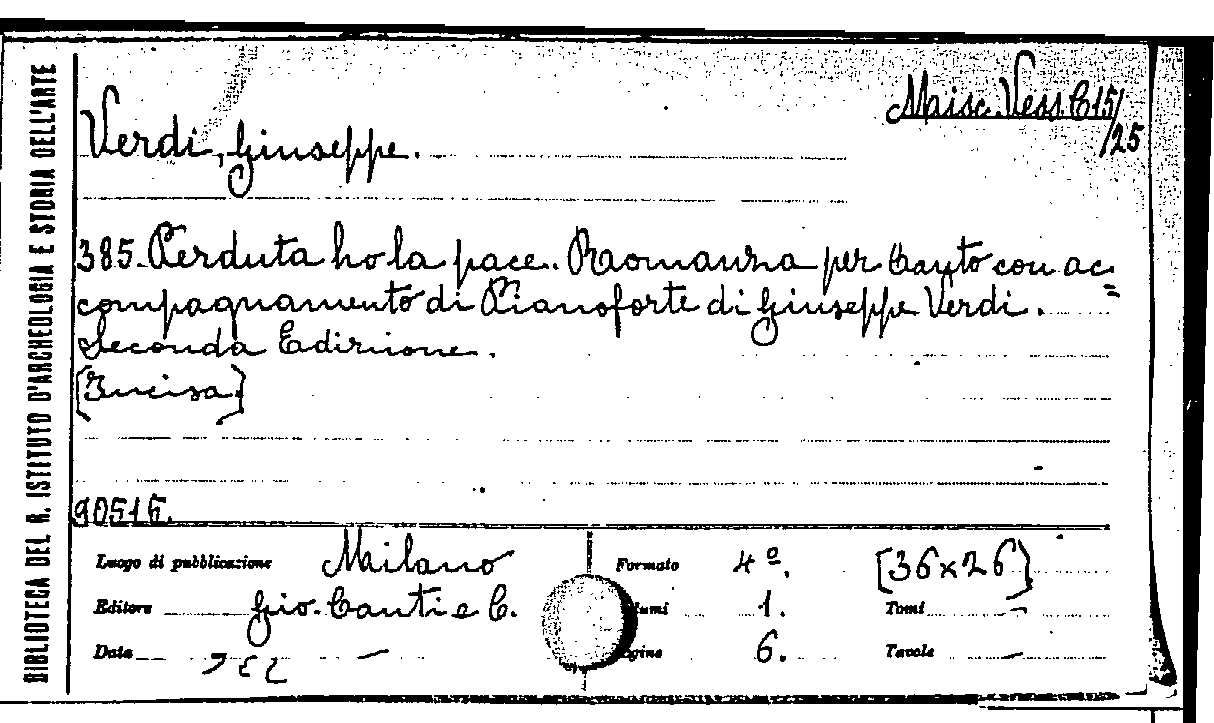 BIBLIOTECA DEL R. ISTITUTO D'ARCHEOLOGIA E STORIA DELL'ARTE
Misc. Vess. C 15/
/25
Verdi, Giuseppe.
385. Perduta ho la pace. Romanza per Canto con ac=
compagnamento di Pianoforte di Giuseppe Verdi.
Seconda Edizione.
[Incisa]
90515.
Luogo di pubblicazione Milano Formato 4º. [36x26]
Editore Gio. Canti e C. lumi 1. Tomi —
Data — gine 6. Tavole —